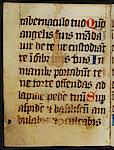 tabernaculo tuo Qm̄
angelis suis manda
uit de te ut custodiant
te in oībus uiis tuis In
manib; portabunt te
ne forte offendas ad
lapidē pedē tuū S
aspidē & basiliscū am
bulabis & cōculcabis